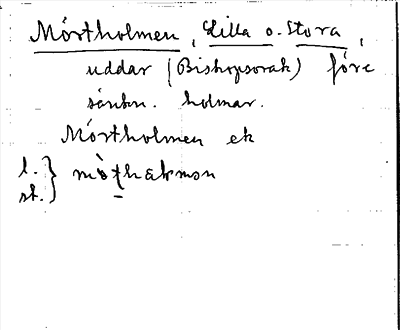 Mörtholmen, Lilla o. Stora,
uddar (Bishopsorak) före
sänkn. holmar.
Mörtholmen ek
l. } 
st.